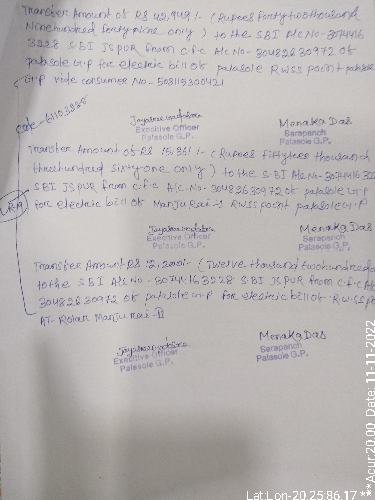 Transfer Amount of RS 42,949/- (Rupees fortytwothousand
Ninehundred fortynine only) to the SBI A/c No- 3074416
3228 SBI JSPUR from c.f.c A/c No- 30482630972 of
palasole G.P for electric bill of palasole RWSS point palasole
G.P vide consumer No- 503115300421
Code-
Jayakrushna
Executive Officer
Palasole G.P.
Menaka Das
Sarapanch
Palasole G.P.
Transfer Amount of RS 15,361/- (Rupees fifteen thousand
threehundred sixty one only) to the SBI A/c No- 30744163228
SBI JSPUR from c.f.c A/c No- 30482630972 of palasole G.P
for electric bill of Manjurai-1 RWSS point palasole G.P
Executive Officer
Palasole G.P.
Menaka Das
Sarapanch
Palasole G.P.
Transfer Amount RS 12,200/- (Twelve thousand twohundred
to the SBI A/c No- 30744163228 SBI JSPUR from c.f.c A/c
30482630972 of palasole G.P for electric bill of RWSS
AT- Rolar Manjurai-II
Executive Officer
Palasole G.P.
Menaka Das
Sarapanch
Palasole G.P.
Lat:Lon-20.25:86.17 **Acur:20.00, Date: 11-11-2022